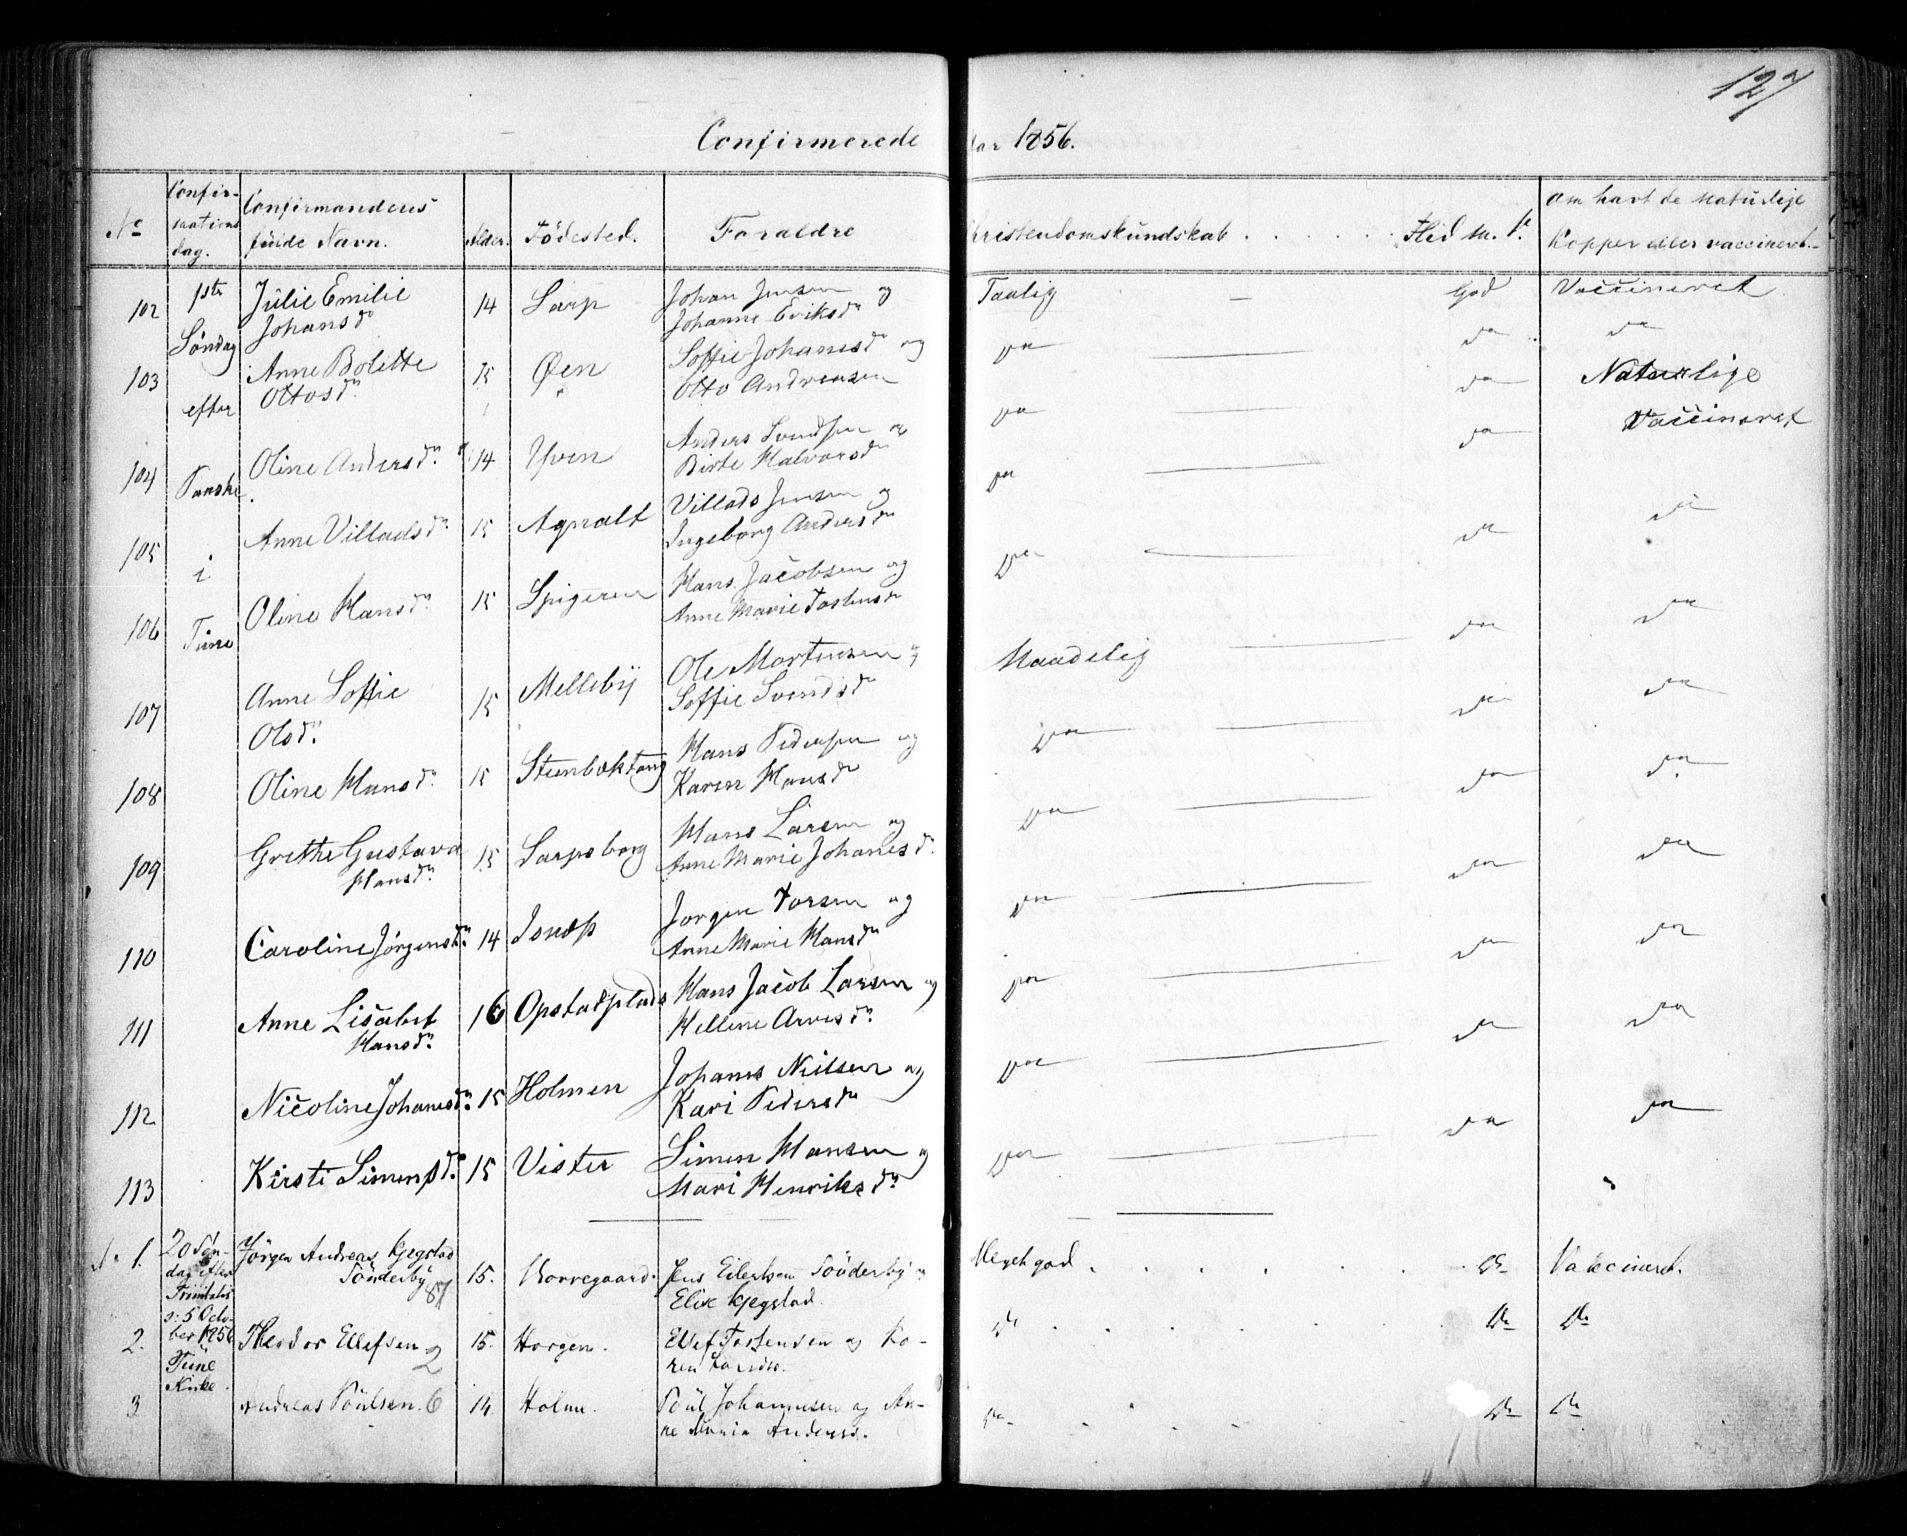 127
Confirmerede
Aar 1856.
No
Confir-
mations
dag.
Confirmandens
fulde Navn.
Alder.
Födested.
Foraldre
Kristendomskundskab . . . . . . Flid m. V.
om havt de naturlige
Kopper eller vaccineret.
102 1ste Julie Emilie 14 Sarp Johan Jensen og Taalig — God Vaccineret
Söndag Johansdr Johanne Eriksdr
103 Anne Bolette 15 Øen Soffie Johanesdr og Do — Do Do
efter Ottosdr. Otto Andreasen Do Naturlige
104 Paaske Oline Andersdr. 14 Yven Anders Svendsen og Do — Do Vaccineret
Birte Halvorsdr
105 Anne Villadsdr. 15 Agnalt Villads Jensen og Do — Do Do
i Ingeborg Andersdr
106 Tune Oline Hansdr. 15 Spigeren Hans Jacobsen og Maadelig — Do Do
Anne Marie Tostensdr
107 Anne Soffie 15 Melleby Ole Mortensen og Do — Do Do
Olsdr. Soffie Svendsdr
108 Oline Hansdr. 15 Stenbektang Hans Pedersen og Do — Do Do
Karen Hansdr
109 Grethe Gustava 15 Sarpsborg Hans Larsen og Do — Do Do
Hansdr. Anne Marie Johanesdr.
110 Caroline Jørgensdr. 14 Isnæss Jorgen Torsen og Do — Do Do
Anne Marie Hansdr
111 Anne Lisabet 16 Opstadplads Hans Jacob Larsen og Do — Do Do
Hansdr. Hellene Arnesdr.
112 Nicoline Johanesdr. 15 Holmen Johanes Nielsen og Do — Do Do
Kari Pedersdr
113 Kirsti Simensdr. 15 Vister Simen Hansen og
Mari Henriksdr.
No 1. 20 Søn- Jörgen Andreas Kjegstad 15. Borregaard. Jens Eilertsen Tönderby og Meget god . . . . . Do Vakcineret.
dag efter Tönderby 81 Elise Kjegstad.
Trinitatis
o: 5 Octo-
ber 1856
2. Theodor Ellefsen 2 15. Horgen. Ellef Torstensen og Ka- Do . . . . . Do Do
Tune ren Larsdr.
Kirke.
3 Andreas Poulsen. 6 14. Holme. Poul Johannesen og An- Do . . . . . Do Do
ne Maria Andersd.